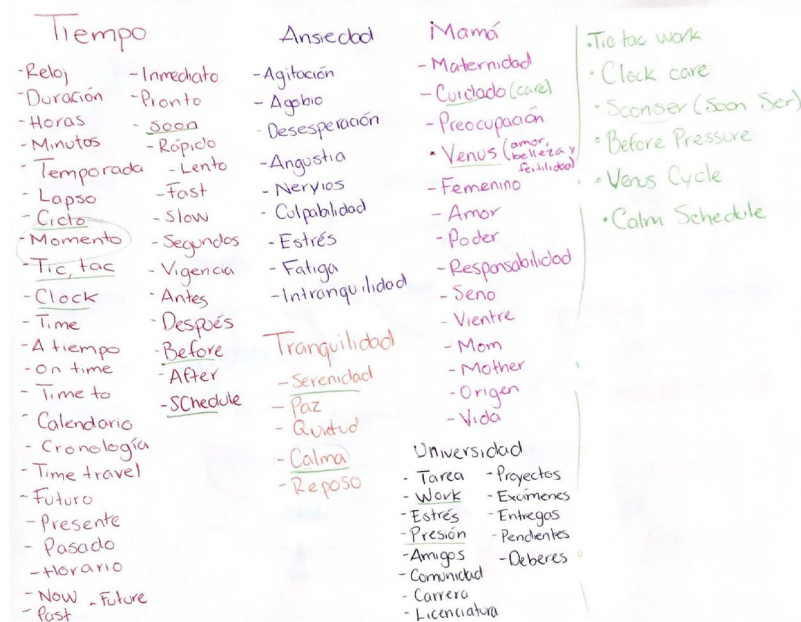 Tiempo
-Reloj
-Duración
-Horas
-Minutos
-Temporada
-Lapso
-Ciclo
-Momento
-Tic, tac
-Clock
-Time
-A tiempo
-on time
-Time to
-Calendario
-Cronología
-Time travel
-Futuro
-Presente
-Pasado
-Horario
-Now
-Past
-Future
-Inmediato
-Pronto
-Soon
-Rápido
-Lento
-Fast
-Slow
-Segundos
-Vigencia
-Antes
-Después
-Before
-After
-SChedule
Ansiedad
-Agitación
-Agobio
-Desesperación
-Angustia
-Nervios
-Culpabilidad
-Estrés
-Fatiga
-Intranquilidad
Tranquilidad
-Serenidad
-Paz
-Quietud
-Calma
-Reposo
Mamá
-Maternidad
-Cuidado (care)
-Preocupación
•Venus (amor, belleza y fertilidad)
-Femenino
-Amor
-Poder
-Responsabilidad
-Seno
-Vientre
-Mom
-Mother
-Origen
-Vida
Universidad
-Tarea
-Work
-Estrés
-Presión
-Amigos
-Comunidad
-Carrera
-Licenciatura
-Proyectos
-Exámenes
-Entregas
-Pendientes
-Deberes
•Tic tac work
•Clock care
•Soonser (Soon Ser)
•Before Pressure
•Venus Cycle
•Calm Schedule